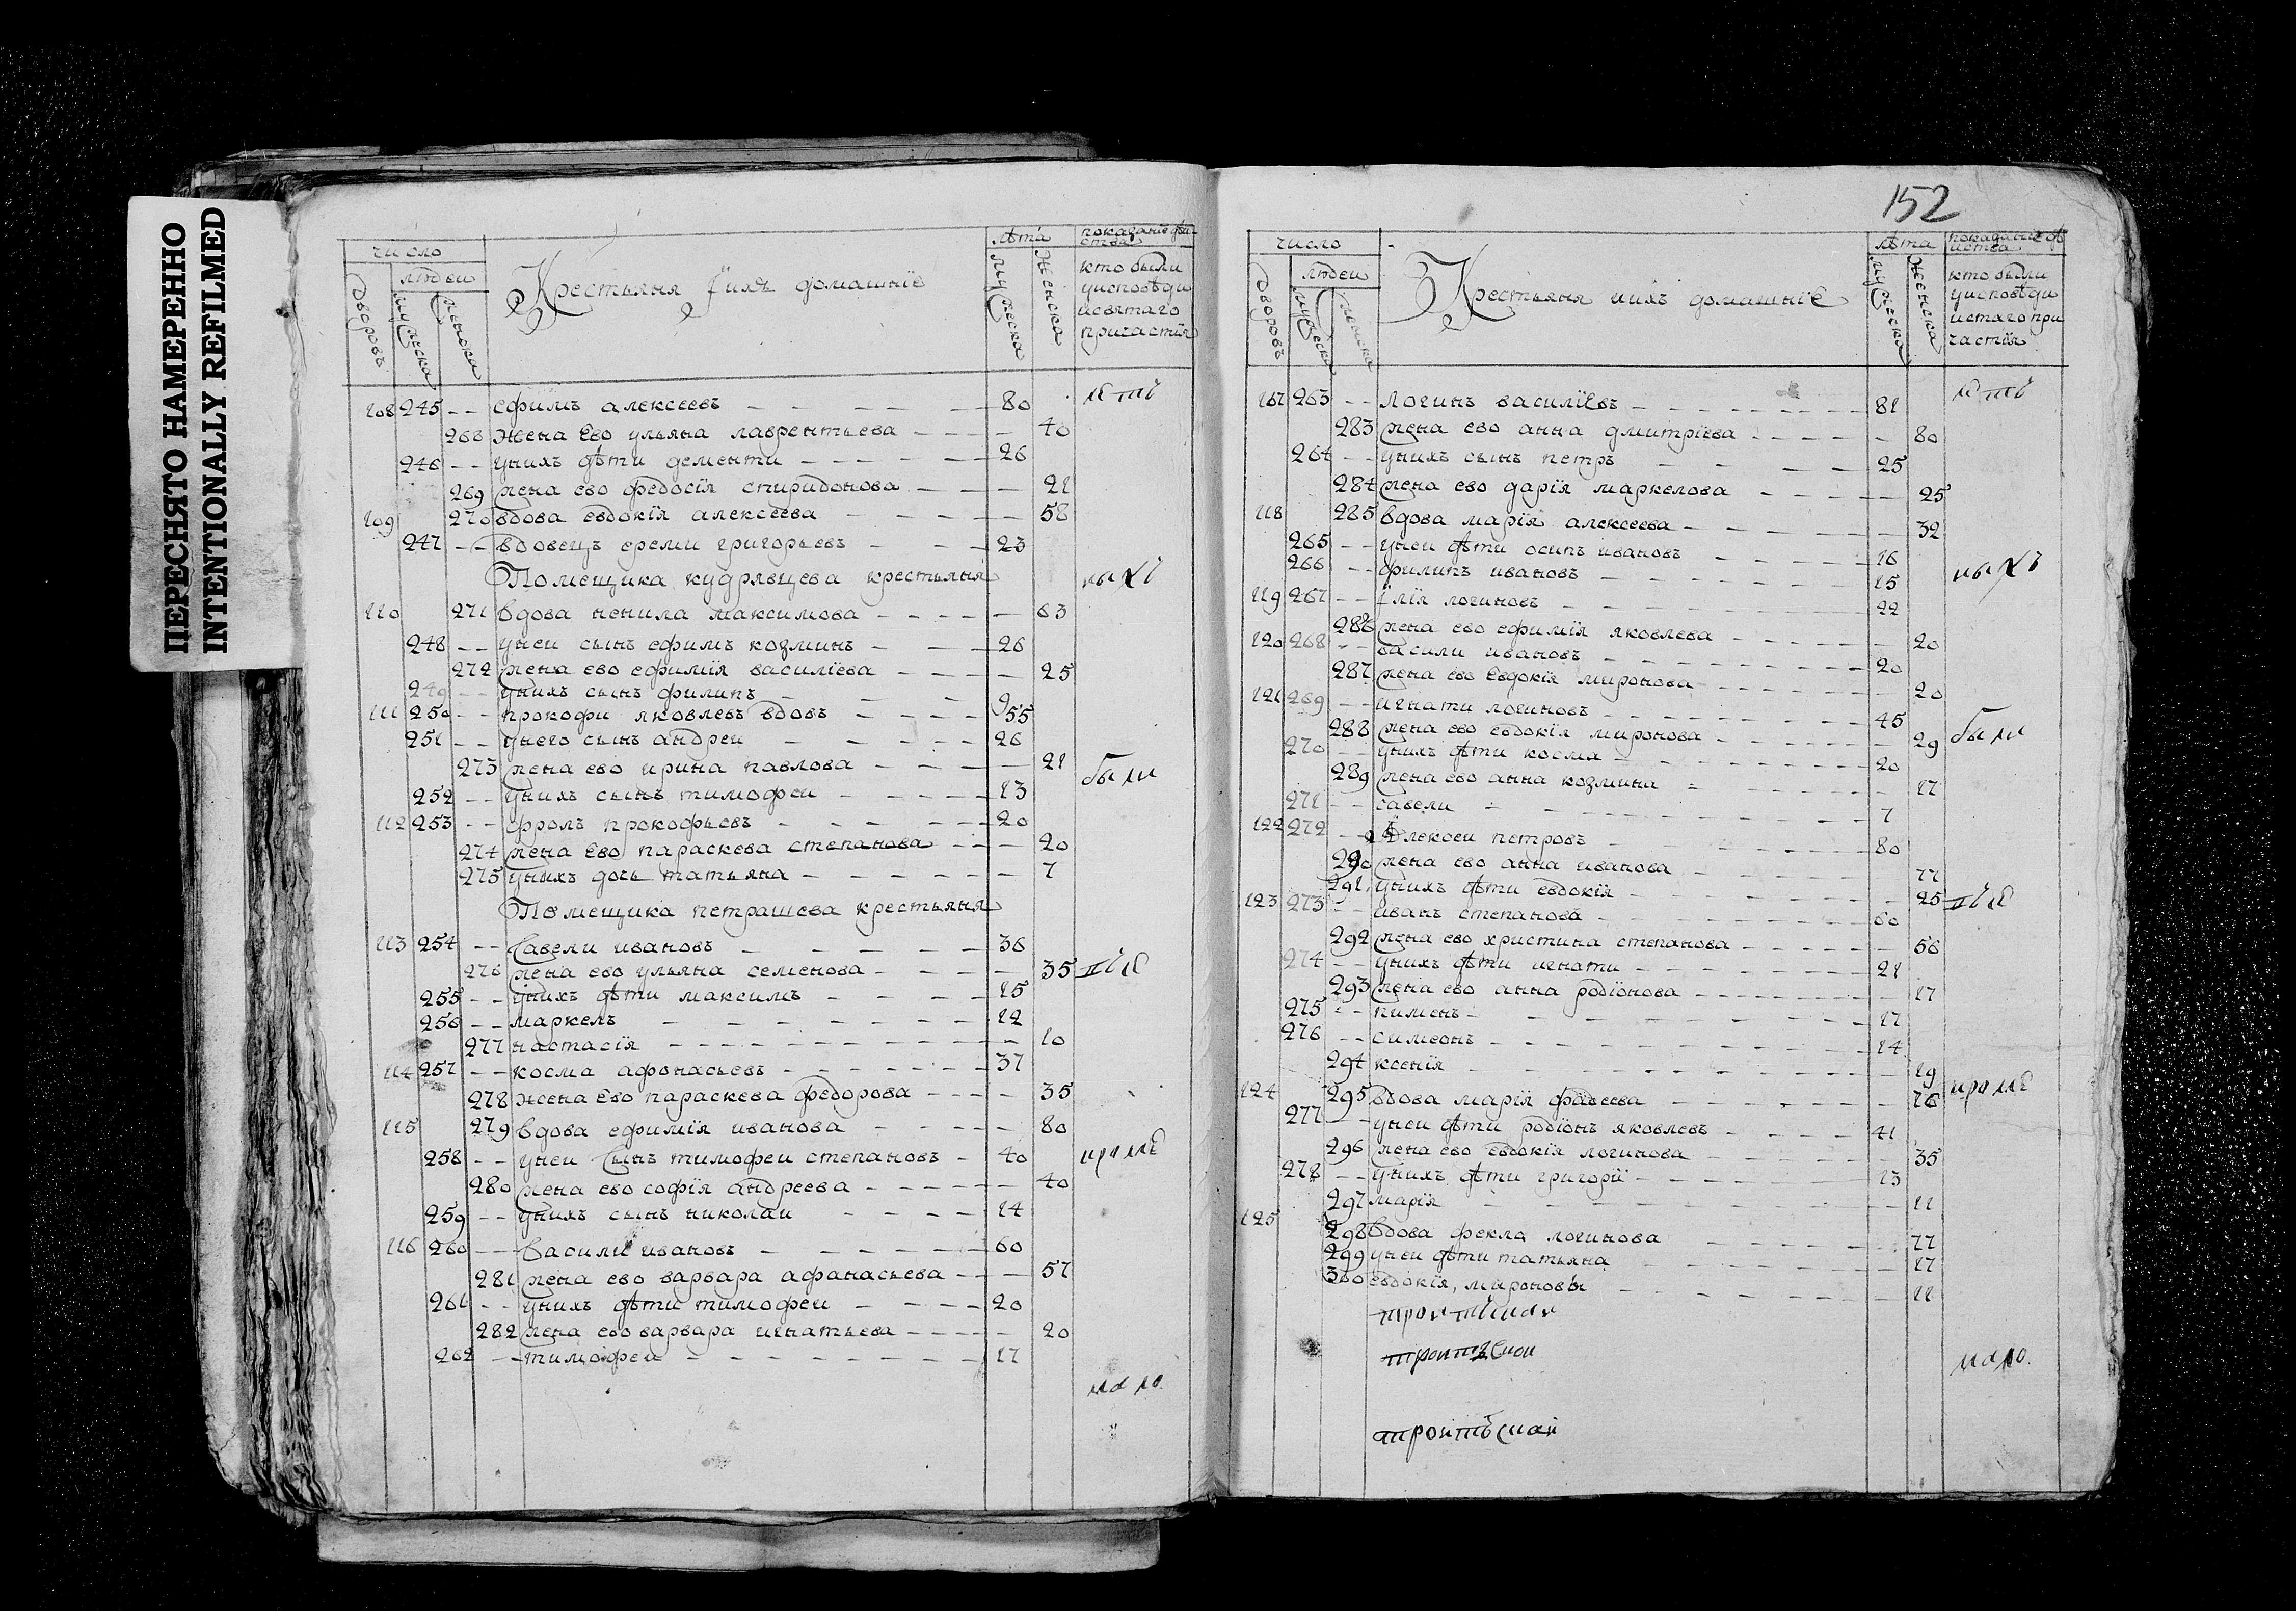 ПЕРЕСНЯТО НАМЕРЕННО
INTENTIONALLY REFILMED
число лѣта показание дѣиства
людеи
дворовъ мужеска женска
Крестьяня їихъ домашнїе
мужеска женска
кто были
уисповѣди
исвятаго
причастїя
108 245 -- ефимъ алексеевъ 80
268 жена Ево ульяна лаврентьева 40
246 -- унихъ дѣти дементи 26
269 жена ево федосїя спиридонова 21
109 270 вдова евдокїя алексеева 58
247 -- вдовецъ еремии григорьевъ 23
Помещика кудрявцева крестьяня
110 271 вдова ненила максимова 63
248 -- унеи сынъ ефимъ козминъ 26
272 жена ево ефимїя василїева 25
249 -- унихъ сынъ филипъ
111 250 -- прокофи яковлевъ вдовъ 55
251 -- унего сынъ андреи 26
273 жена ево ирина павлова 21
были
252 -- унихъ сынъ тимофеи 13
112 253 -- фролъ прокофьевъ 20
274 жена Ево параскева степанова 20
275 унихъ дочь татьяна 7
Помещика петрашева крестьяня
113 254 -- Савели ивановъ 36
276 жена ево ульяна семенова 35
255 -- унихъ дѣти максимъ 15
256 -- маркелъ 12
277 настасїя 10
114 257 -- косма афонасьевъ 37
278 жена Ево параскева федорова 35
115 279 вдова ефимїя иванова 80
258 -- унеи сынъ тимофеи степановъ 40
280 жена ево софїя андреева 40
259 -- унихъ сынъ николаи 14
116 260 -- Васили ивановъ 60
281 жена ево варвара афанасьева 57
261 -- унихъ дѣти тимофеи 20
282 жена ево варвара игнатьева 20
262 -- тимофеи 17
мало
152
число лѣта
людеи
дворовъ мужеска женска
Крестьяня иихъ домашнїе
мужеска женска
кто были
уисповѣди
истаго при
частїя
117 263 -- логинъ василїевъ 81
283 жена ево анна дмитрїева 80
264 -- унихъ сынъ петръ 25
284 жена ево дарїя маркелова 25
118 285 вдова марїя алексеева 32
265 -- унеи дѣти осипъ ивановъ 16
266 -- филипъ ивановъ 15
119 267 -- їлїя логиновъ 22
286 жена ево ефимїя яковлева 20
120 268 -- васили ивановъ 20
287 жена ево Евдокїя миронова 20
121 269 -- игнати логиновъ 45
288 жена ево евдокїя миронова 29
были
270 -- унихъ дѣти косма 20
289 жена ево анна козмина 17
271 -- савели 7
122 272 -- Алексеи петровъ 80
290 жена ево анна иванова 77
291 унихъ дѣти евдокїя 25
123 273 -- иванъ степанова 60
292 жена ево христина степанова 56
274 -- унихъ дѣти игнати 21
293 жена ево анна родїонова 17
275 -- пименъ 17
276 -- симеонъ 14
294 ксенїя 19
124 295 вдова марїя фадеева 76
277 -- унеи дѣти родїонъ яковлевъ 41
296 жена ево евдокїя логинова 35
278 -- унихъ дѣти григорїи 13
297 марїя 11
125 298 вдова фекла логинова 77
299 унеи дѣти татьяна 17
300 евдокїя, мироновы 11
мало.